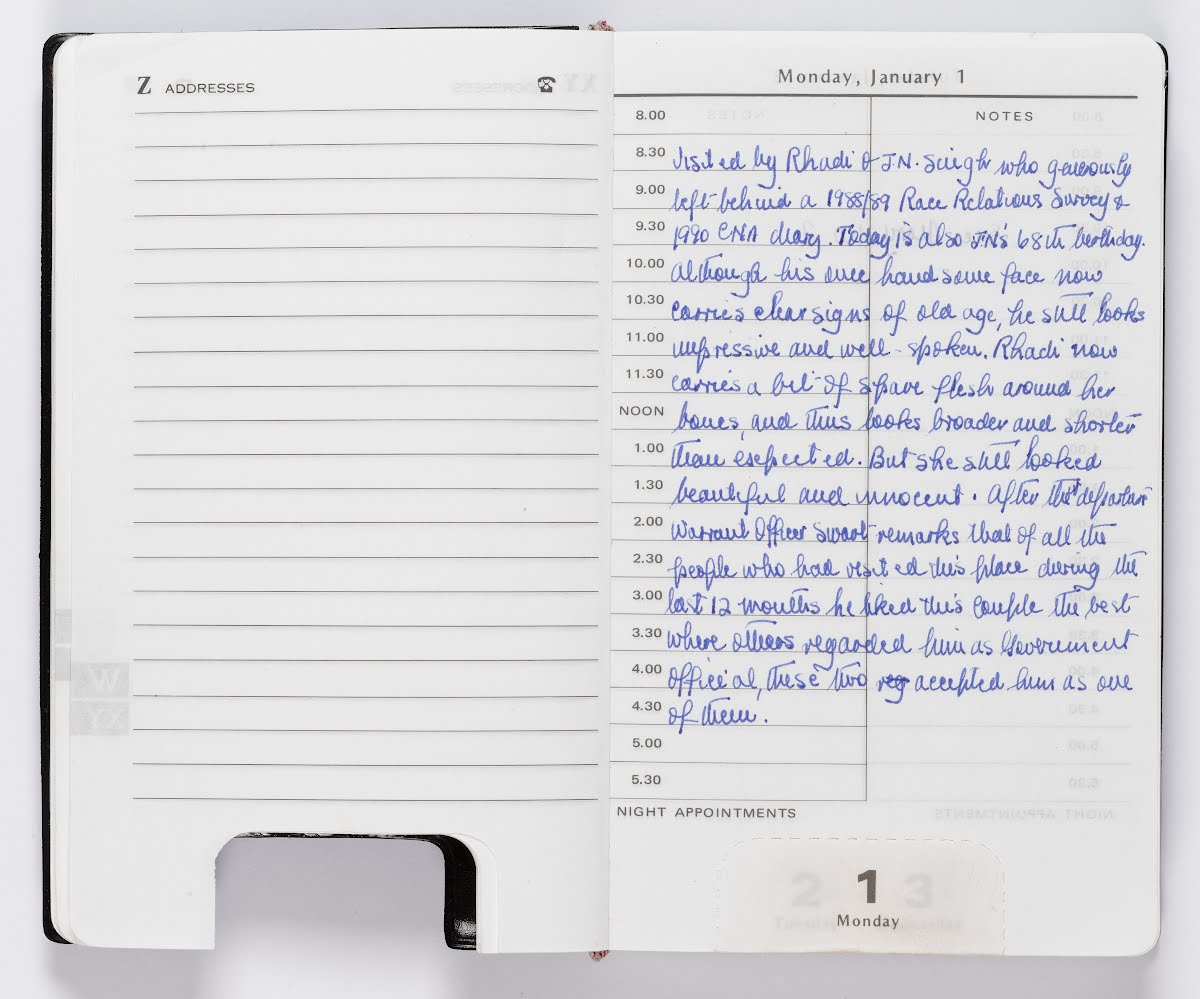 Z ADDRESSES
Monday, January 1
NOTES
8.00
8.30 Visited by Rhadi & J.N. Singh who generously
9.00 left behind a 1988/89 Race Relations Survey &
9.30 1990 CNA diary. Today is also JN's 68th birthday.
10.00 Although his once handsome face now
10.30 carries clear signs of old age, he still looks
11.00 impressive and well-spoken. Rhadi now
11.30 carries a bit of spare flesh around her
NOON bones, and thus looks broader and shorter
1.00 than expected. But she still looked
1.30 beautiful and innocent. After their departure
2.00 Warrant Officer Swart remarks that of all the
2.30 people who had visited this place during the
3.00 last 12 months he liked this couple the best
3.30 where others regarded him as Government
4.00 official, these two accepted him as one
4.30 of them.
5.00
5.30
NIGHT APPOINTMENTS
2 1 3
Monday